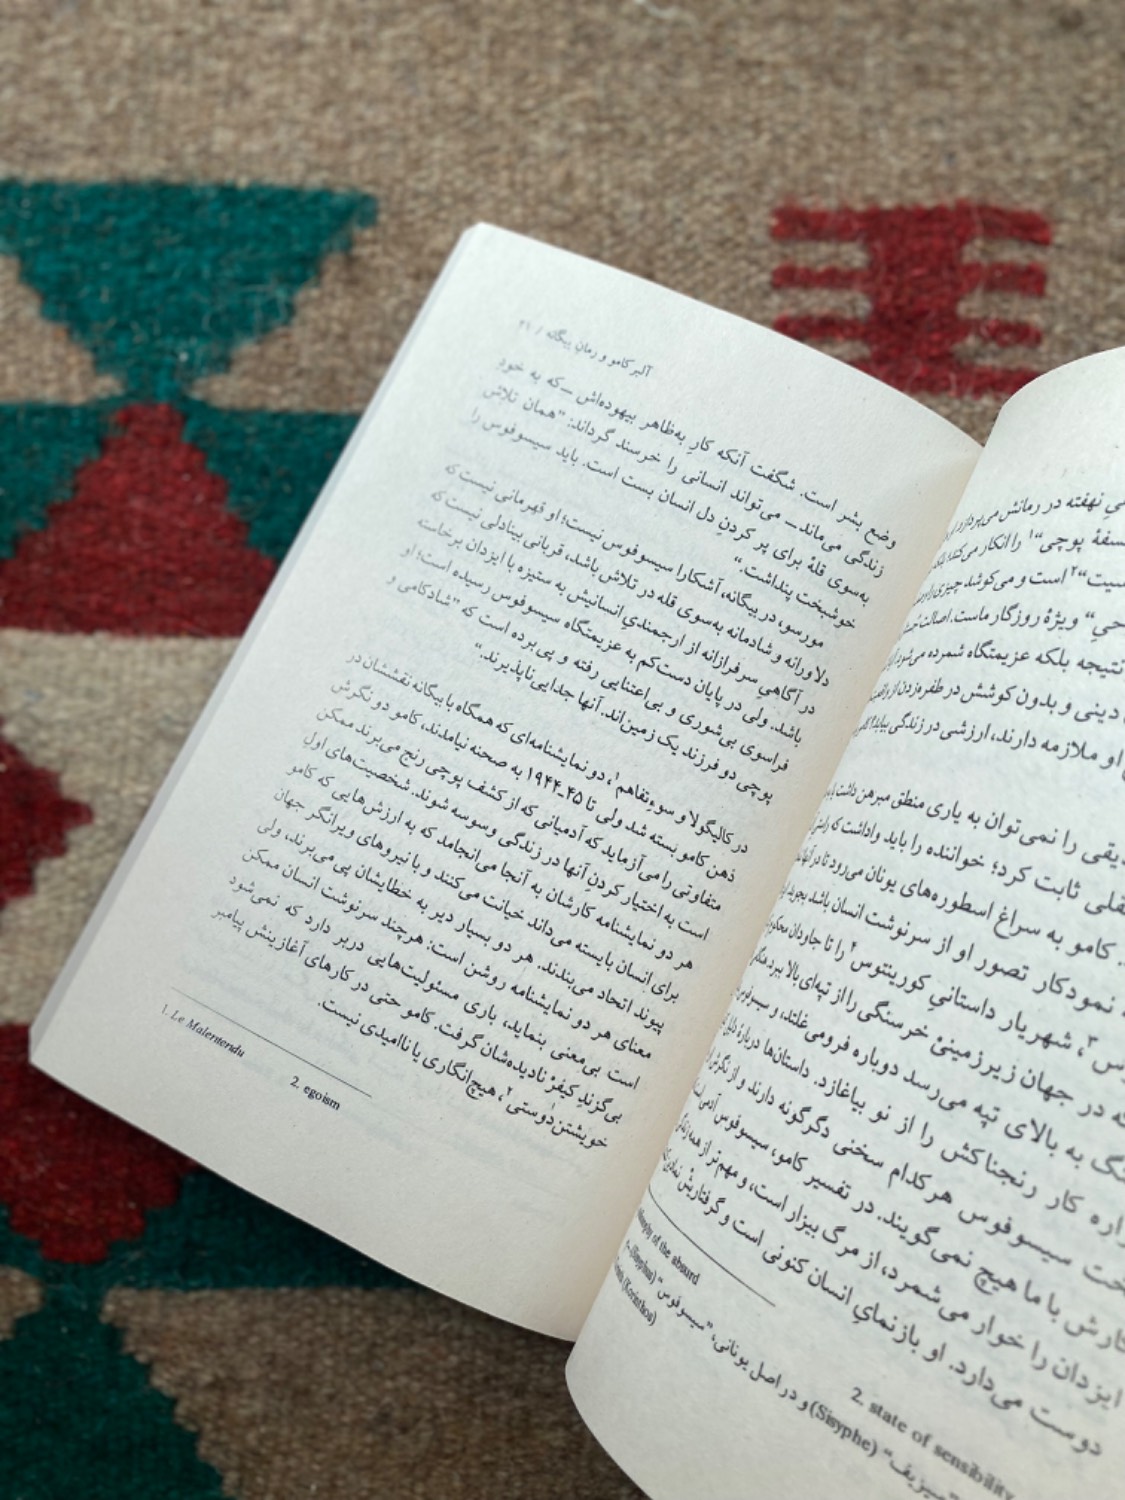 نهفته در رمانش می‌پردازد
پوچی“¹ را انکار می‌کند؛
“² است و می‌کوشد چیزی را
ویژهٔ روزگار ماست. اصالت
نتیجه بلکه عزیمتگاه شمرده می‌شود.
دینی و بدون کوشش در طفره‌زدن از
او ملازمه دارند، ارزشی در زندگی بیابد؟
را نمی‌توان به یاری منطق مبرهن داشت یا
ثابت کرد؛ خواننده را باید واداشت که
کامو به سراغ اسطوره‌های یونان می‌رود تا در آنها
نمودگار تصور او از سرنوشت انسان باشد بجوید.
³، شهریار داستانیِ کورینتوس⁴ را تا جاودان
در جهان زیرزمینیْ خرسنگی را از تپه‌ای بالا ببرد.
به بالای تپه می‌رسد دوباره فرومی‌غلتد، و سیسوفوس
کار رنجناکش را از نو بیاغازد. داستان‌ها دربارهٔ
سیسوفوس هرکدام سخنی دگرگونه دارند و از نگرش
با ما هیچ نمی‌گویند. در تفسیر کامو، سیسوفوس
ایزدان را خوار می‌شمرد، از مرگ بیزار است، و مهم‌تر از همه
دوست می‌دارد. او بازنمایِ انسان کنونی است و گرفتاریش
of the absurd
2. state of sensibility
(Sisyphus) “سیسوفوس“، و در اصل یونانی، (Sisyphe) ”سیزیف“
(Korinthos)
آلبر کامو و رمان بیگانه / ۲۱
وضع بشر است. شگفت آنکه کارِ به‌ظاهر بیهوده‌اش ــ که به خودِ
زندگی می‌ماند ــ می‌تواند انسانی را خرسند گرداند: ”همان تلاش
به‌سوی قلهْ برای پر کردنِ دل انسان بست است. باید سیسوفوس را
خوشبخت پنداشت.“
مورسو، در بیگانه، آشکارا سیسوفوس نیست؛ او قهرمانی نیست که
دلاورانه و شادمانه به‌سوی قله در تلاش باشد، قربانی بینادلی نیست که
در آگاهیِ سرفرازانه از ارجمندیِ انسانیش به ستیزه با ایزدان برخاسته
باشد. ولی در پایان دست‌کم به عزیمتگاه سیسوفوس رسیده است؛ او
فراسوی بی‌شوری و بی‌اعتنایی رفته و پی‌برده است که ”شادکامی و
پوچی دو فرزند یک زمین‌اند. آنها جدایی‌ناپذیرند.“
در کالیگولا و سوءتفاهم¹، دو نمایشنامه‌ای که همگاه با بیگانه نقششان در
ذهن کامو بسته شد ولی تا ۴۵ـ۱۹۴۴ به صحنه نیامدند، کامو دو نگرش
متفاوتی را می‌آزماید که آدمیانی که از کشف پوچی رنج می‌برند ممکن
است به اختیار کردنِ آنها در زندگی وسوسه شوند. شخصیت‌های اولِ
هر دو نمایشنامه کارشان به آنجا می‌انجامد که به ارزش‌هایی که کامو
برای انسان بایسته می‌داند خیانت می‌کنند و با نیروهای ویرانگر جهان
پیوند اتحاد می‌بندند. هر دو بسیار دیر به خطایشان پی می‌برند، ولی
معنای هر دو نمایشنامه روشن است: هرچند سرنوشت انسان ممکن
است بی‌معنی بنماید، باری مسئولیت‌هایی دربر دارد که نمی‌شود
بی‌گزندِ کیفرْ نادیده‌شان گرفت. کامو حتی در کارهای آغازینش پیامبر
خویشتن‌دوستی²، هیچ‌انگاری یا ناامیدی نیست.
1. Le Malentendu
2. egoism